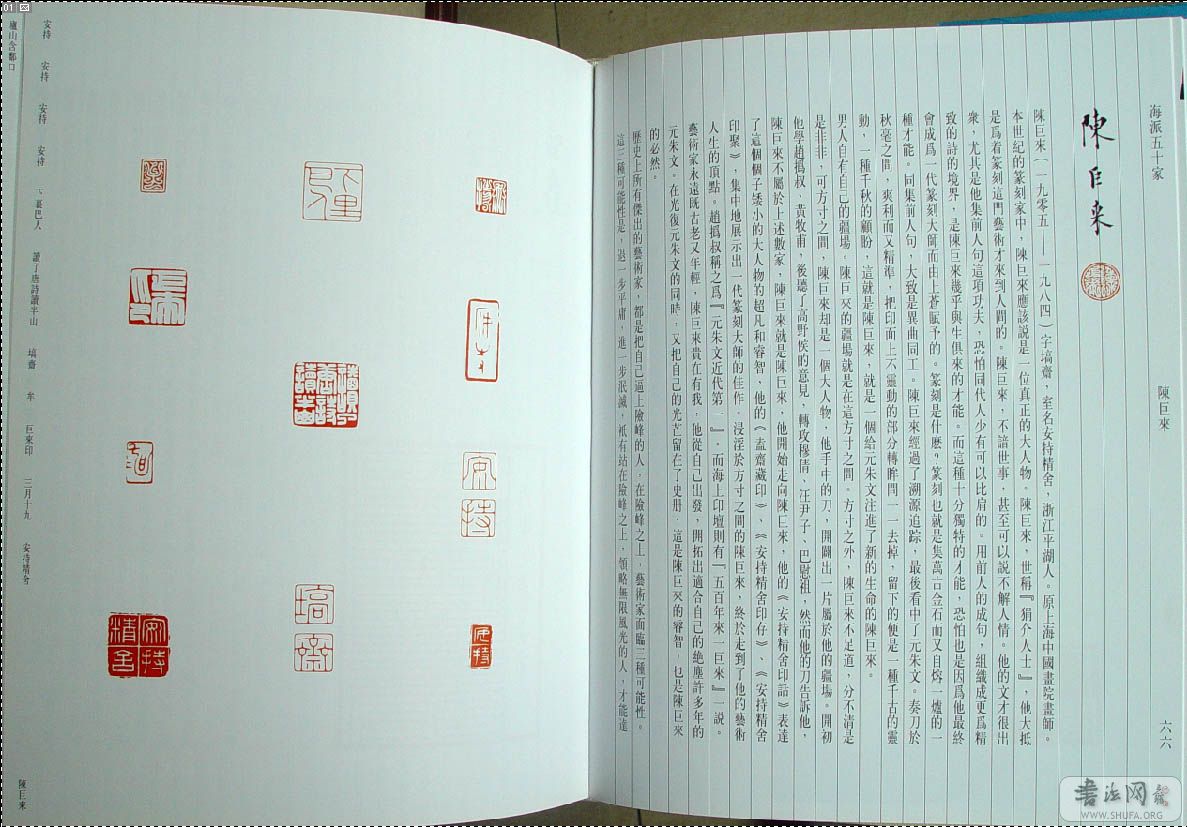 海派五十家
陳巨來
六六
陳巨来
陳巨來（一九零五——一九八四）字塙齋，室名安持精舍，浙江平湖人。原上海中國畫院畫師。
本世紀的篆刻家中，陳巨來應該説是一位真正的大人物。陳巨來，世稱『狷介人士』，他大抵
是爲着篆刻這門藝術才來到人間的。陳巨來，不諳世事，甚至可以説不解人情。他的文才很出
衆，尤其是他集前人句這項功夫，恐怕同代人少有可以比肩的。用前人的成句，組織成更爲精
致的詩的境界，是陳巨來幾乎與生俱來的才能。而這種十分獨特的才能，恐怕也是因爲他最終
會成爲一代篆刻大師而由上蒼賦予的。篆刻是什麽？篆刻也就是集萬言金石而又自熔一爐的一
種才能。同集前人句，大致是異曲同工。陳巨來經過了溯源追踪，最後看中了元朱文。奏刀於
秋毫之間，爽利而又精準，把印面上不靈動的部分轉眸間一一去掉，留下的便是一種千古的靈
動，一種千秋的顧盼，這就是陳巨來，就是一個給元朱文注進了新的生命的陳巨來。
男人自有自己的疆場。陳巨來的疆場就是在這方寸之間。方寸之外，陳巨來不足道，分不清是
是非非，可方寸之間，陳巨來却是一個大人物，他手中的刀，開闢出一片屬於他的疆場。開初
他學趙撝叔、黄牧甫，後聽了高野侯的意見，轉攻穆倩、汪尹子、巴慰祖，然而他的刀告訴他，
陳巨來不屬於上述數家，陳巨來就是陳巨來，他開始走向陳巨來，他的《安持精舍印話》表達
了這個個子矮小的大人物的超凡和睿智，他的《盍齋藏印》、《安持精舍印存》、《安持精舍
印聚》，集中地展示出一代篆刻大師的佳作。浸淫於方寸之間的陳巨來，終於走到了他的藝術
人生的頂點。趙撝叔稱之爲『元朱文近代第一』。而海上印壇則有『五百年來一巨來』一説。
藝術家永遠既古老又年輕，陳巨來貴在有我，他從自己出發，開拓出適合自己的絶塵許多年的
元朱文。在光復元朱文的同時，又把自己的光芒留在了史册，這是陳巨來的睿智，也是陳巨來
的必然。
歷史上所有傑出的藝術家，都是把自己逼上險峰的人，在險峰之上，藝術家面臨三種可能性。
這三種可能性是，退一步平庸，進一步泯滅，衹有站在險峰之上，領略無限風光的人，才能達
安持
安持
安持
安持
下里巴人
讀了唐詩讀半山
塙齋
牟
巨來印
三月十九
安持精舍
廬山含鄱口
陳巨來
01
書法网
WWW.SHUFA.ORG